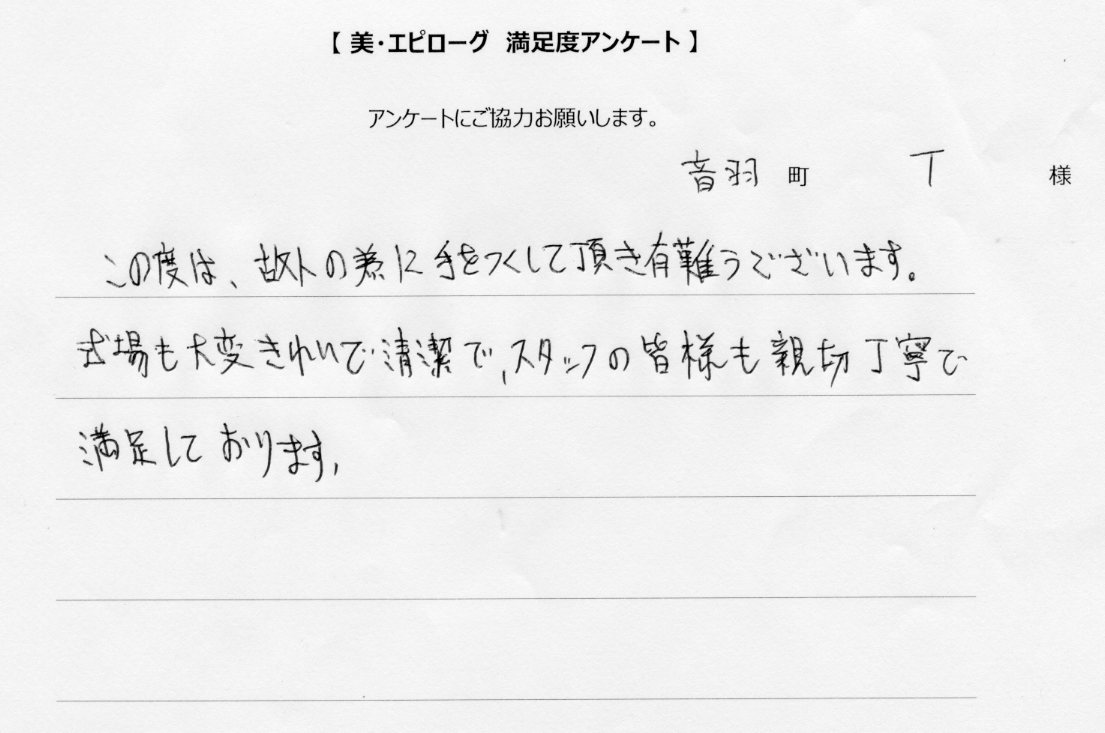 【 美・エピローグ 満足度アンケート 】
アンケートにご協力お願いします。
音羽 町 T 様
この度は、故人の為に手をつくして頂き有難うございます。
式場も大変きれいで清潔で、スタッフの皆様も親切丁寧で
満足しております。